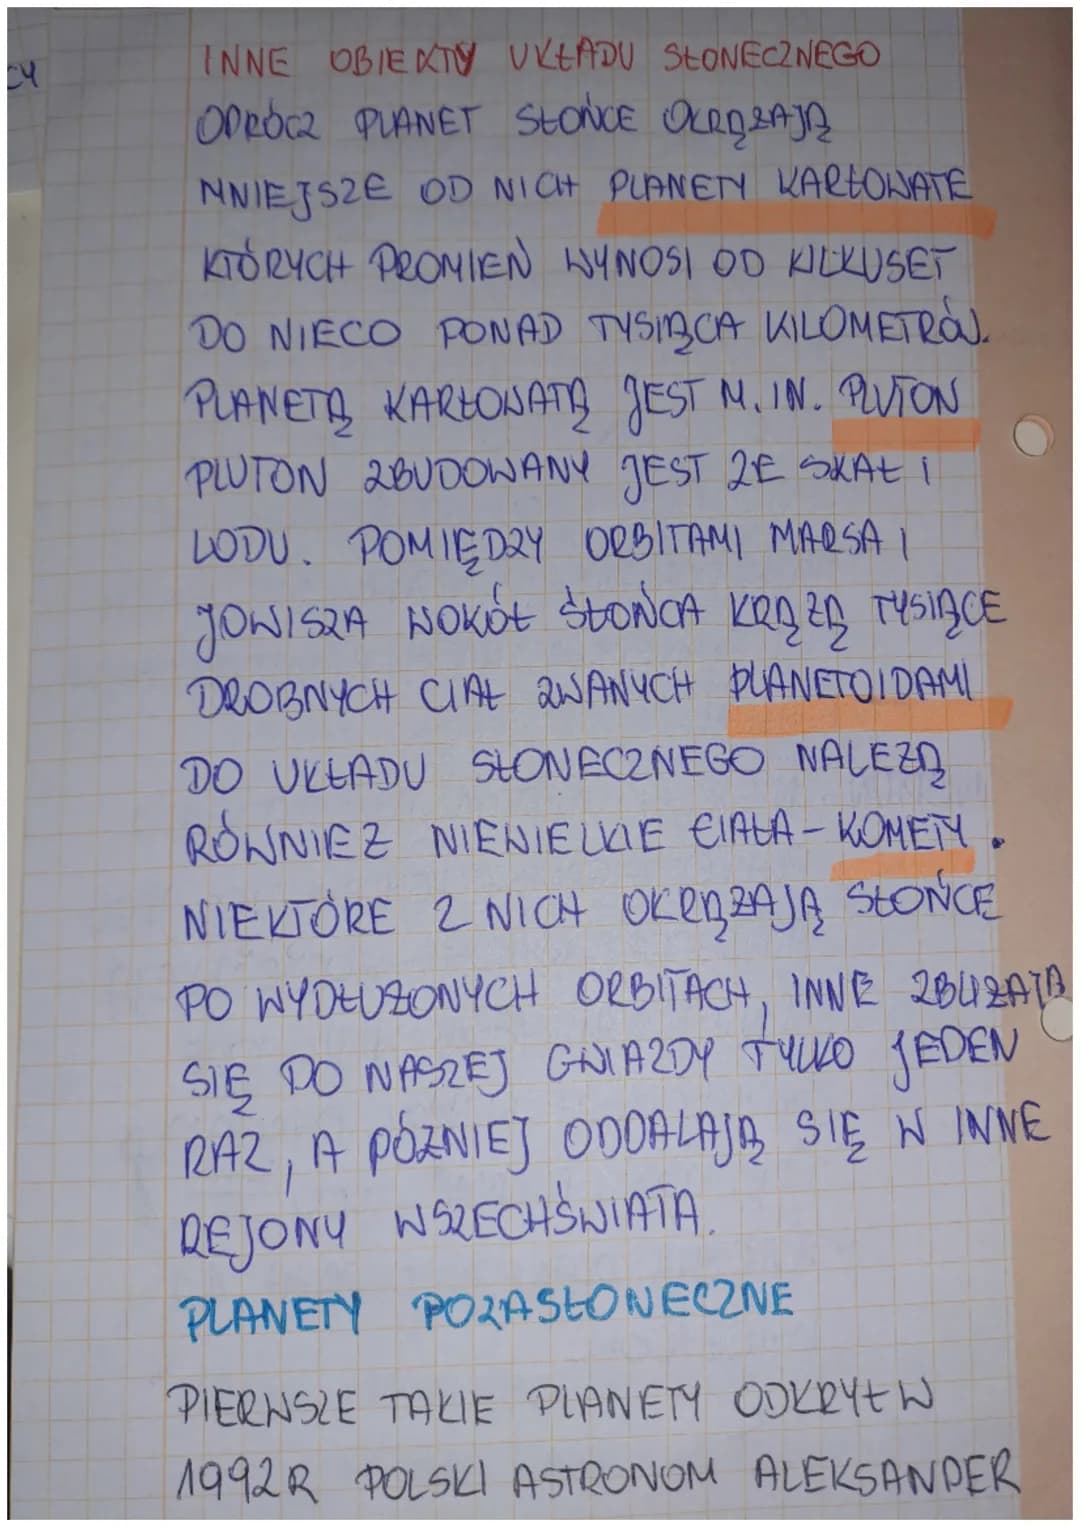 CY
INNE OBIEKTY UKŁADU SŁONECZNEGO
OPRÓCZ PLANET SŁOŃCE OKRĄŻAJĄ
MNIEJSZE OD NICH PLANETY KARŁOWATE
KTÓRYCH PROMIEŃ WYNOSI OD KILKUSET
DO NIECO PONAD TYSIĄCA KILOMETRÓW.
PLANETĄ KARŁOWATĄ JEST M.IN. PLUTON
PLUTON ZBUDOWANY JEST ZE SKAŁ I
LODU. POMIĘDZY ORBITAMI MARSA I
JOWISZA WOKÓŁ SŁOŃCA KRĄŻĄ TYSIĄCE
DROBNYCH CIAŁ ZWANYCH PLANETOIDAMI
DO UKŁADU SŁONECZNEGO NALEŻĄ
RÓWNIEŻ NIEWIELKIE CIAŁA - KOMETY.
NIEKTÓRE Z NICH OKRĄŻAJĄ SŁOŃCE
PO WYDŁUŻONYCH ORBITACH, INNE ZBLIŻAJĄ
SIĘ DO NASZEJ GWIAZDY TYLKO JEDEN
RAZ, A PÓŹNIEJ ODDALAJĄ SIĘ W INNE
REJONY WSZECHŚWIATA.
PLANETY POZASŁONECZNE
PIERWSZE TAKIE PLANETY ODKRYŁ W
1992R POLSKI ASTRONOM ALEKSANDER